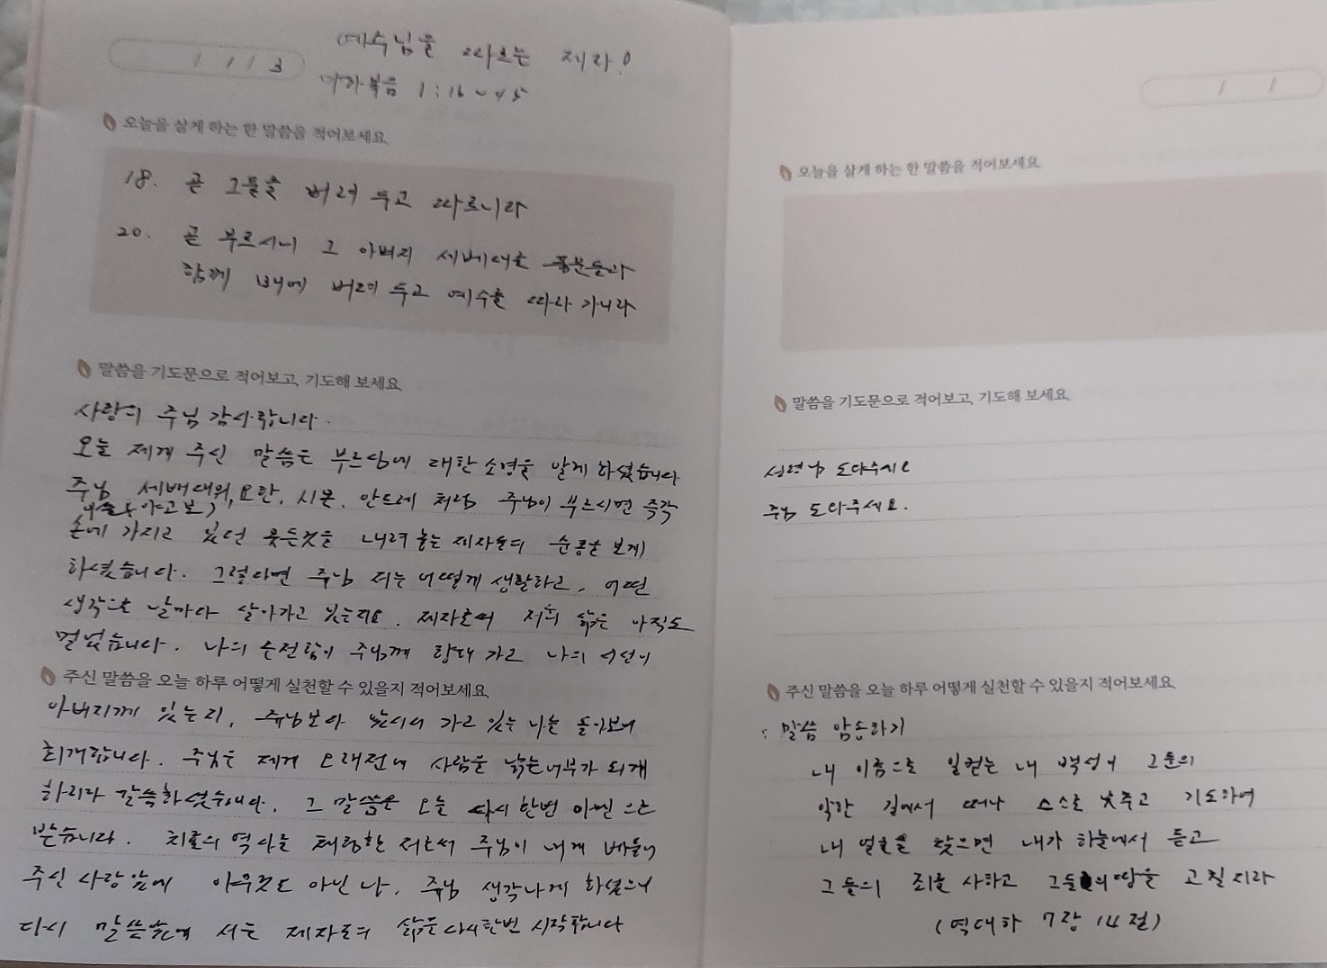 예수님을 따르는 제자!
1 / 13
마가복음 1:16~45
오늘을 살게 하는 한 말씀을 적어보세요.
18. 곧 그물을 버려 두고 따르니라
20. 곧 부르시니 그 아버지 세베대를 품꾼들과
함께 배에 버려 두고 예수를 따라 가니라
말씀을 기도문으로 적어보고, 기도해 보세요.
사랑의 주님 감사합니다.
오늘 제게 주신 말씀은 부르심에 대한 소명을 알게 하셨습니다
주님 세배대의, 요한, 시몬, 안드레 처럼 주님이 부르시면 즉각
야고보
손에 가지고 있던 모든것을 내려놓는 제자들의 순종을 보게
하셨습니다. 그렇다면 주님 저는 어떻게 생활하고, 어떤
생각으로 날마다 살아가고 있는지요. 제자로써 저의 삶은 아직도
멀었습니다. 나의 순전함이 주님께 향해 가고 나의 시선이
주신 말씀을 오늘 하루 어떻게 실천할 수 있을지 적어보세요.
아버지께 있는지, 주님보다 앞서서 가고 있는 나를 돌아보며
회개합니다. 주님은 제게 오래전에 사람을 낚는어부가 되게
하리라 말씀하셨습니다. 그 말씀을 오늘 다시 한번 아멘 으로
받습니다. 치료의 역사를 체험한 저로써 주님이 내게 베풀어
주신 사랑 앞에 아무것도 아닌 나, 주님 생각나게 하셨으니
다시 말씀앞에 서는 제자로의 삶을 다시한번 시작합니다
오늘을 살게 하는 한 말씀을 적어보세요.
말씀을 기도문으로 적어보고, 기도해 보세요.
성령님 도와주세요
주님 도와주세요.
주신 말씀을 오늘 하루 어떻게 실천할 수 있을지 적어보세요.
: 말씀 암송하기
내 이름으로 일컫는 내 백성이 그들의
악한 길에서 떠나 스스로 낮추고 기도하여
내 얼굴을 찾으면 내가 하늘에서 듣고
그들의 죄를 사하고 그들의 땅을 고칠지라
(역대하 7장 14절)